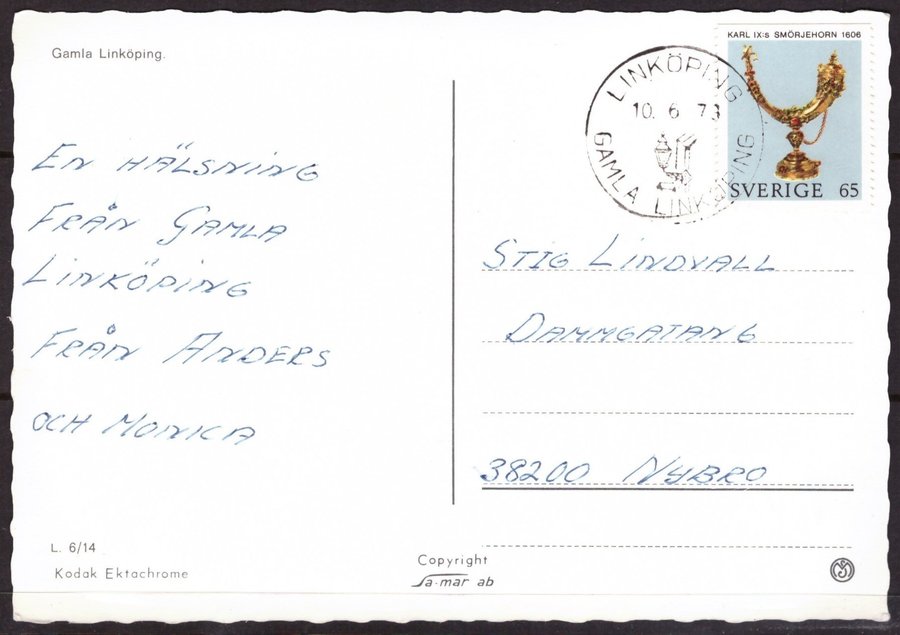 Gamla Linköping.
EN HÄLSNING
FRÅN GAMLA
LINKÖPING
FRÅN ANDERS
OCH MONICA
L. 6/14
Kodak Ektachrome
Copyright
Sa-mar ab
LINKÖPING
10. 6 73
GAMLA LINKÖPING
KARL IX:s SMÖRJEHORN 1606
SVERIGE 65
STIG LINDVALL
DAMMGATAN 6
38200 NYBRO